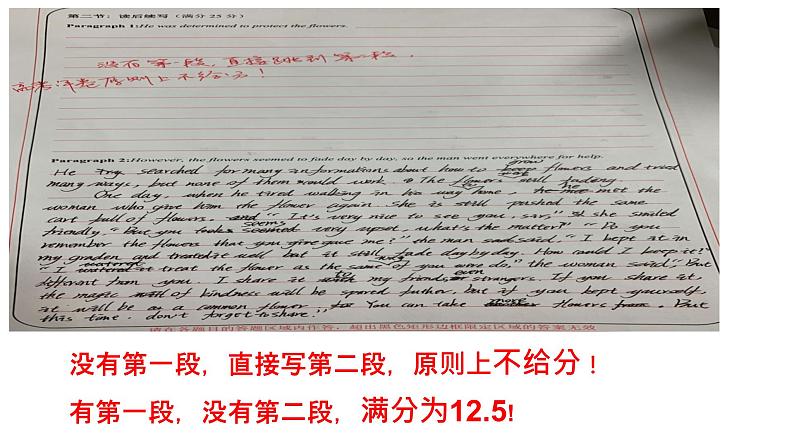 第二节：读后续写（满分 25 分）
Paragraph 1:He was determined to protect the flowers.
没有第一段，直接跳到第二段，
高考评卷原则上不给分！
Paragraph 2:However, the flowers seemed to fade day by day, so the man went everywhere for help.
grow
He try searched for many informations about how to flowers and tried
many ways, but none of them would work. The flowers still fading
One day, when he tired walking in his way home, he met the
woman who gave him the flower again. She is still pushed the same
cart full of flowers. and "It's very nice to see you, sar," she smiled
seems
friendly. "But you very upset, what's the matter?" "Do you
remember the flowers that you give gave me?" the man said. "I kept it in
my graden and treated it well but it still fade day by day. How could I keep it?"
"I treat the flower as the same of you were do," the woman said. "But
different from you. I share it my friends, even strangers. If you share it,
the magic of kindness will be spared futher, but if you kept yourself,
it will be as a common flower. You can take more flowers . But
this time. don't forget to share."
请在各题目的答题区域内作答，超出黑色矩形边框限定区域的答案无效
没有第一段，直接写第二段，原则上不给分！
有第一段，没有第二段，满分为12.5!